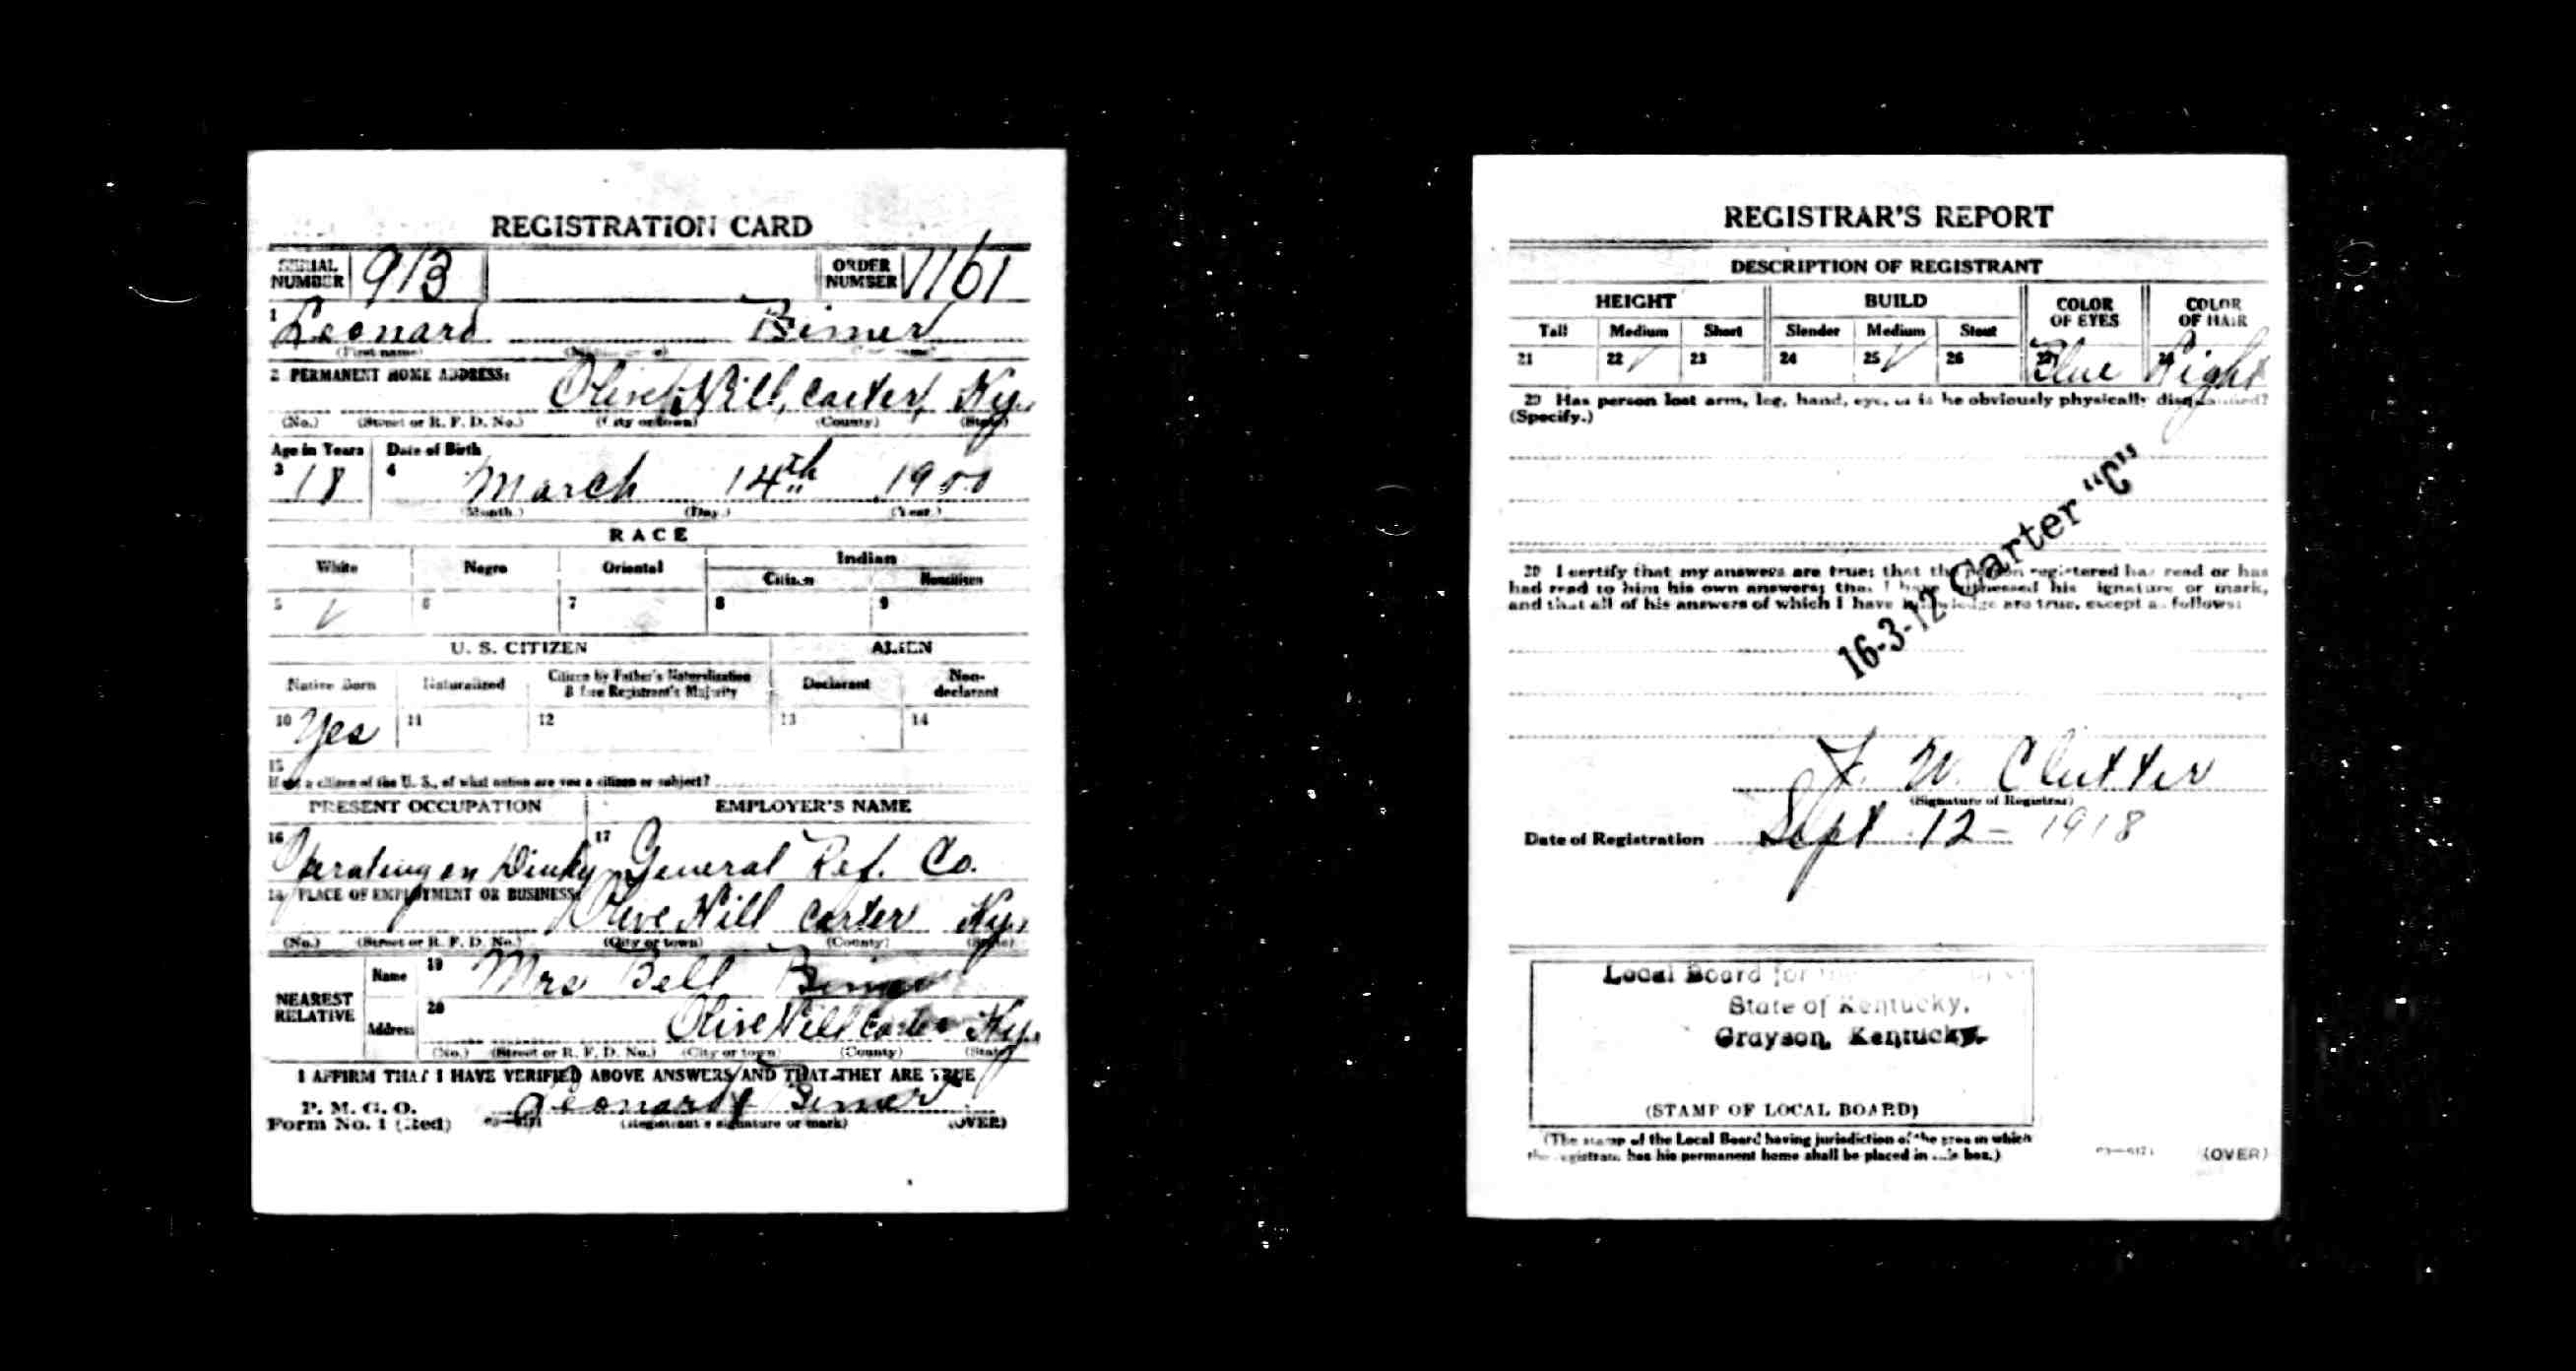 REGISTRATION CARD
SERIAL NUMBER 913 ORDER NUMBER 1161
1 Leonard Bimer
(First name)
2 PERMANENT HOME ADDRESS: Olive Hill, Carter, Ky.
(No.) (Street or R. F. D. No.) (City or town) (County) (State)
Age in Years Date of Birth
3 18 4 March 14th 1900
(Month.) (Day.) (Year.)
RACE
White Negro Oriental Indian
Citizen Noncitizen
5 ✓ 6 7 8 9
U. S. CITIZEN ALIEN
Native Born Naturalized Citizen by Father's Naturalization Before Registrant's Majority Declarant Non-declarant
10 Yes 11 12 13 14
15
If not a citizen of the U. S., of what nation are you a citizen or subject?
PRESENT OCCUPATION EMPLOYER'S NAME
16 Operating on Dinky 17 General Ref. Co.
18 PLACE OF EMPLOYMENT OR BUSINESS: Olive Hill Carter Ky.
(No.) (Street or R. F. D. No.) (City or town) (County) (State)
NEAREST RELATIVE Name 19 Mrs Bell Bimer
Address 20 Olive Hill Carter Ky.
(No.) (Street or R. F. D. No.) (City or town) (County) (State)
I AFFIRM THAT I HAVE VERIFIED ABOVE ANSWERS AND THAT THEY ARE TRUE
P. M. G. O.
Form No. 1 (Red) Leonard Bimer
(Registrant's signature or mark) (OVER)
REGISTRAR'S REPORT
DESCRIPTION OF REGISTRANT
HEIGHT BUILD COLOR OF EYES COLOR OF HAIR
Tall Medium Short Slender Medium Stout
21 22 ✓ 23 24 25 ✓ 26 27 Blue 28 Light
29 Has person lost arm, leg, hand, eye, or is he obviously physically disqualified?
(Specify.)
16-3-12 Carter "C"
30 I certify that my answers are true; that the person registered has read or has
had read to him his own answers; that I have witnessed his signature or mark,
and that all of his answers of which I have knowledge are true, except as follows:
F. W. Clutter
(Signature of Registrar)
Date of Registration Sept 12 - 1918
Local Board for
State of Kentucky,
Grayson, Kentucky.
(STAMP OF LOCAL BOARD)
(The stamp of the Local Board having jurisdiction of the area in which
the registrant has his permanent home shall be placed in this box.)
(OVER)